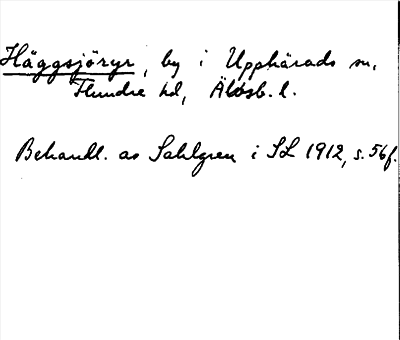 Häggsjöryr, by i Upphärads sn,
Flundre hd, Älvsb. l.
Behandl. av Sahlgren i SL 1912, s. 56f.